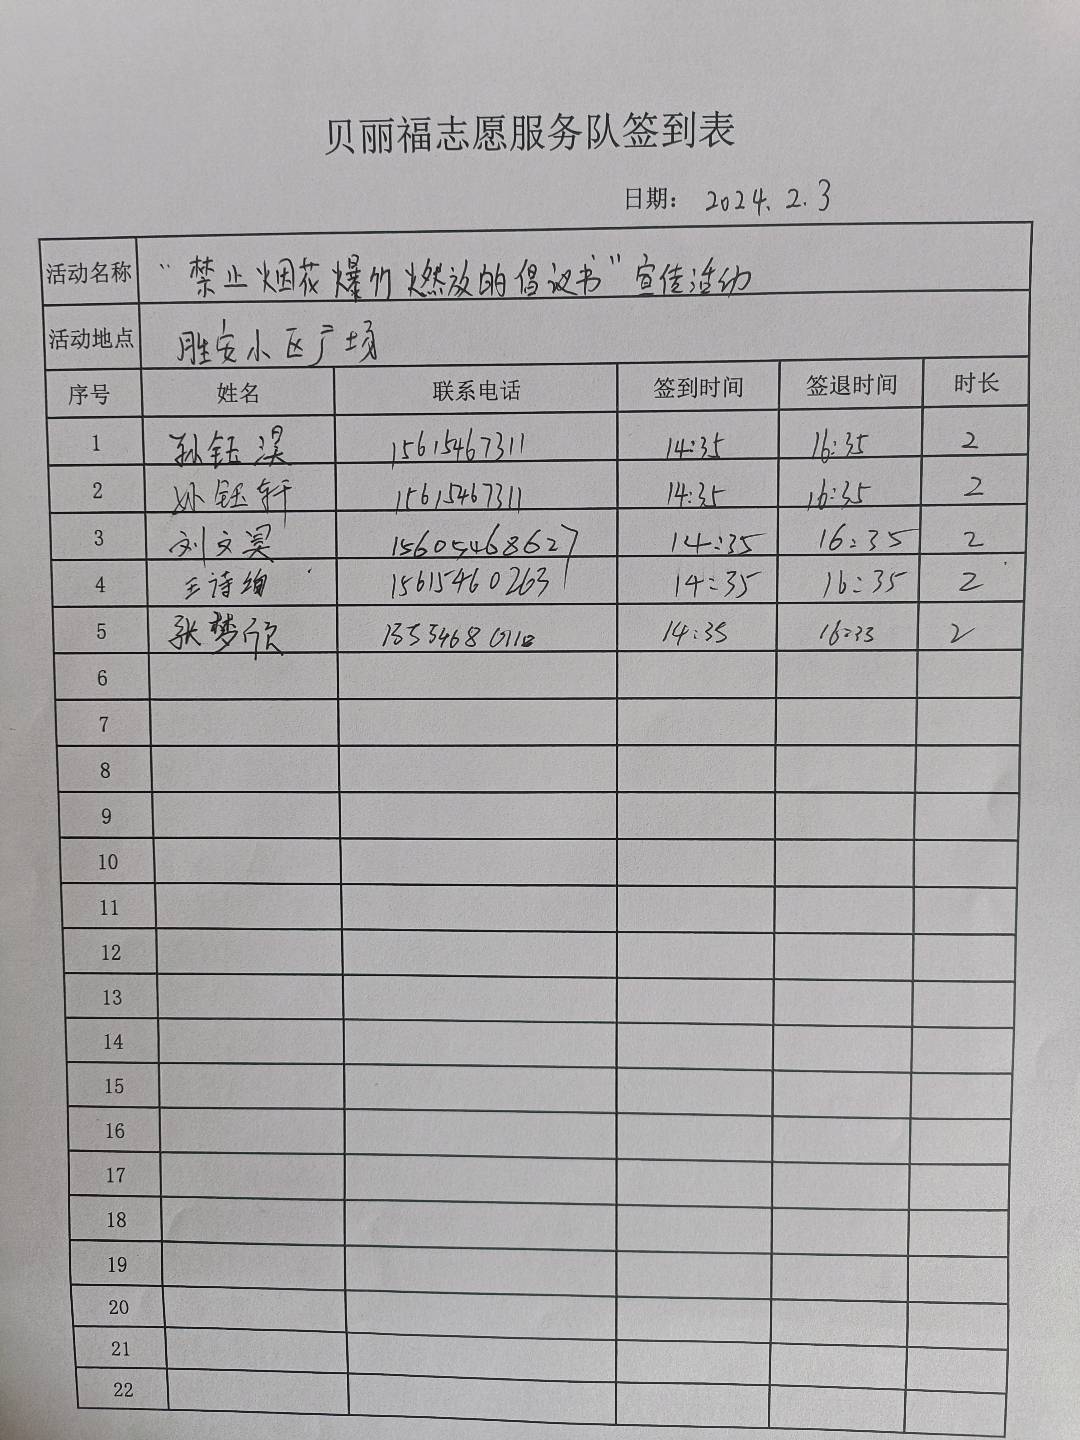 贝丽福志愿服务队签到表
日期： 2024.2.3
活动名称 “禁止烟花爆竹燃放的倡议书”宣传活动
活动地点 胜安小区广场
序号 姓名 联系电话 签到时间 签退时间 时长
1 孙钰淏 15615467311 14:35 16:35 2
2 孙钰轩 15615467311 14:35 16:35 2
3 刘文昊 15605468627 14:35 16:35 2
4 王诗绚 15615460263 14:35 16:35 2
5 张梦欣 14:35 16:35 2
6
7
8
9
10
11
12
13
14
15
16
17
18
19
20
21
22